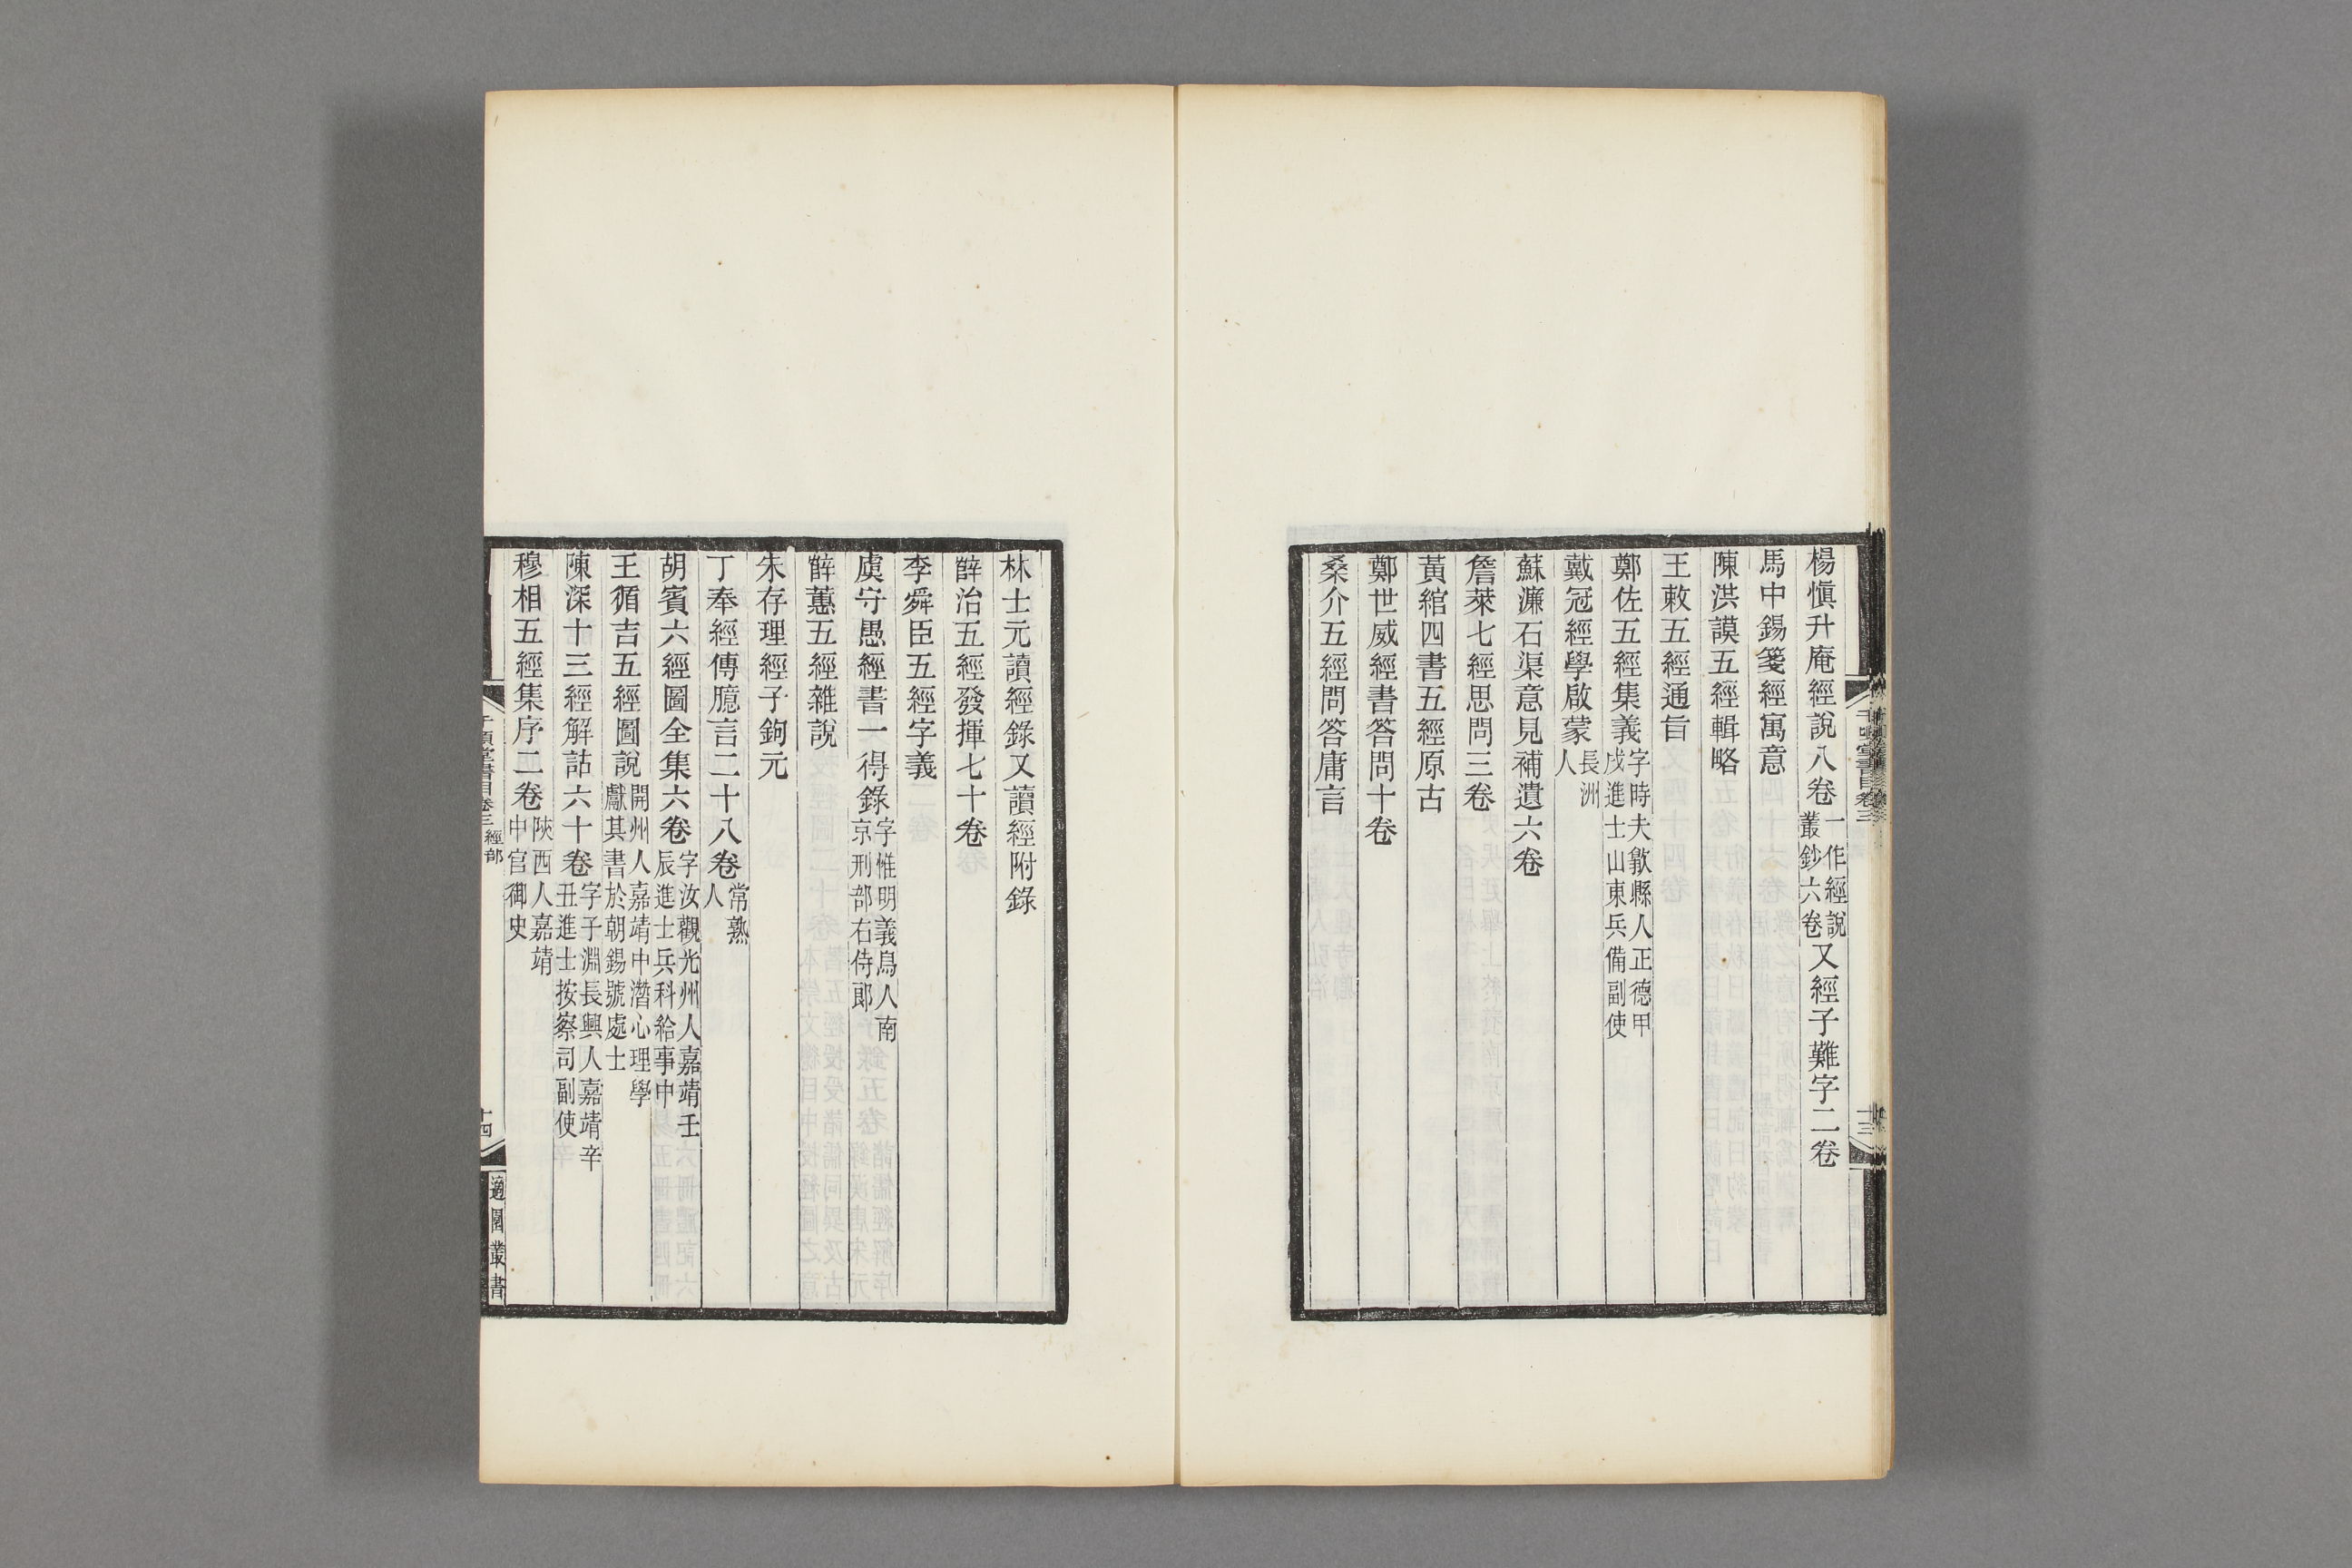 楊愼升庵經說八卷一作經說叢鈔六卷又經子難字二卷
馬中錫箋經寓意
陳洪謨五經輯略
王敕五經通旨
鄭佐五經集義字時夫歙縣人正德甲戌進士山東兵備副使
戴冠經學啟蒙長洲人
蘇濂石渠意見補遺六卷
詹萊七經思問三卷
黃綰四書五經原古
鄭世威經書答問十卷
桑介五經問答庸言
千頃堂書目卷三
十三
林士元讀經錄又讀經附錄
薛治五經發揮七十卷
李舜臣五經字義
虞守愚經書一得錄字惟明義烏人南京刑部右侍郎
薛蕙五經雜說
朱存理經子鉤元
丁奉經傳臆言二十八卷常熟人
胡賓六經圖全集六卷字汝觀光州人嘉靖壬辰進士兵科給事中
王循吉五經圖說開州人嘉靖中濳心理學獻其書於朝錫號處士
陳深十三經解詁六十卷字子淵長興人嘉靖辛丑進士按察司副使
穆相五經集序二卷陝西人嘉靖中官御史
千頃堂書目卷三 經部
十四
適園叢書